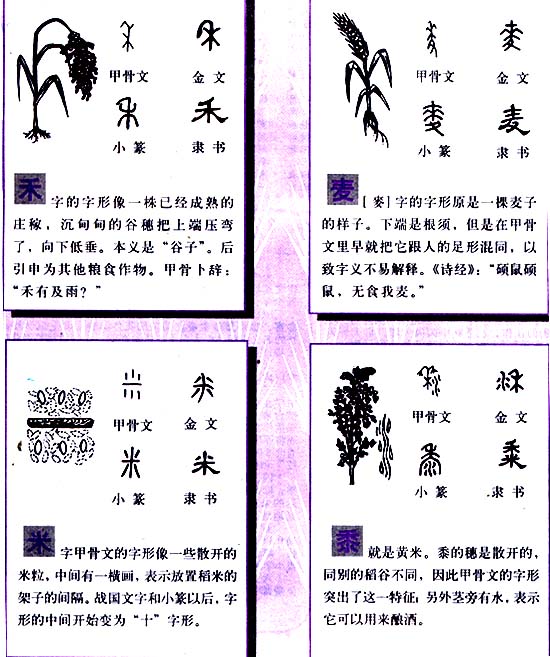 甲骨文 金文
小篆 隶书
禾 字的字形像一株已经成熟的
庄稼，沉甸甸的谷穗把上端压弯
了，向下低垂。本义是“谷子”。后
引申为其他粮食作物。甲骨卜辞：
“禾有及雨？”
甲骨文 金文
小篆 隶书
麦 [麥]字的字形原是一棵麦子
的样子。下端是根须，但是在甲骨
文里早就把它跟人的足形混同，以
致字义不易解释。《诗经》：“硕鼠硕
鼠，无食我麦。”
甲骨文 金文
小篆 隶书
米 字甲骨文的字形像一些散开的
米粒，中间有一横画，表示放置稻米的
架子的间隔。战国文字和小篆以后，字
形的中间开始变为“十”字形。
甲骨文 金文
小篆 隶书
黍 就是黄米。黍的穗是散开的，
同别的稻谷不同，因此甲骨文的字形
突出了这一特征；另外茎旁有水，表示
它可以用来酿酒。